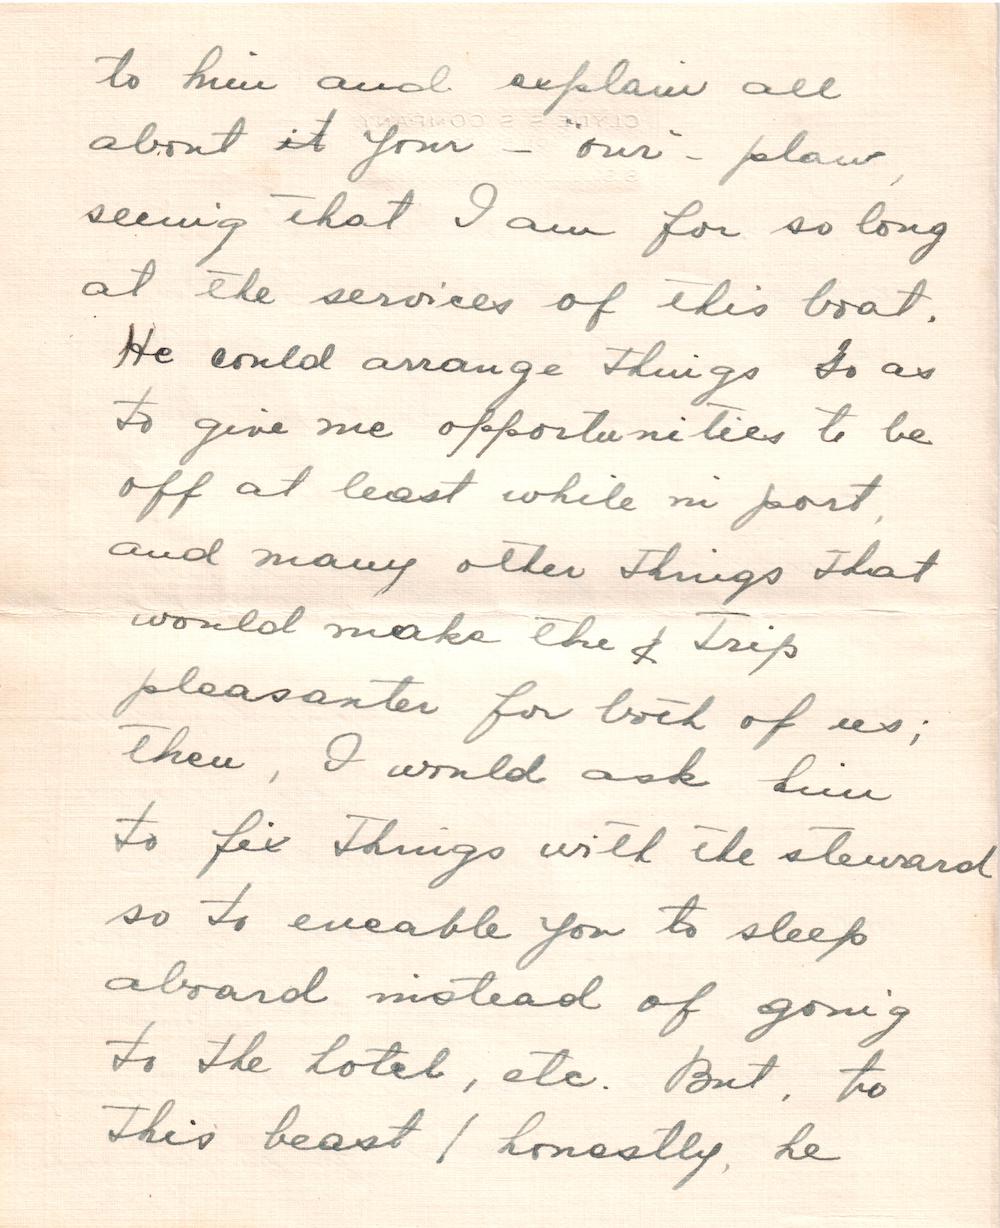 to him and explain all
about it your - "our" - plan,
seeing that I am for so long
at the services of this boat.
He could arrange things so as
to give me opportunities to be
off at least while in port,
and many other things that
would make the & trip
pleasanter for both of us;
then, I would ask him
to fix things with the steward
so to eneable you to sleep
aboard instead of going
to the hotel, etc. But, to
this beast / honestly, he
CLYDE S S COMPANY